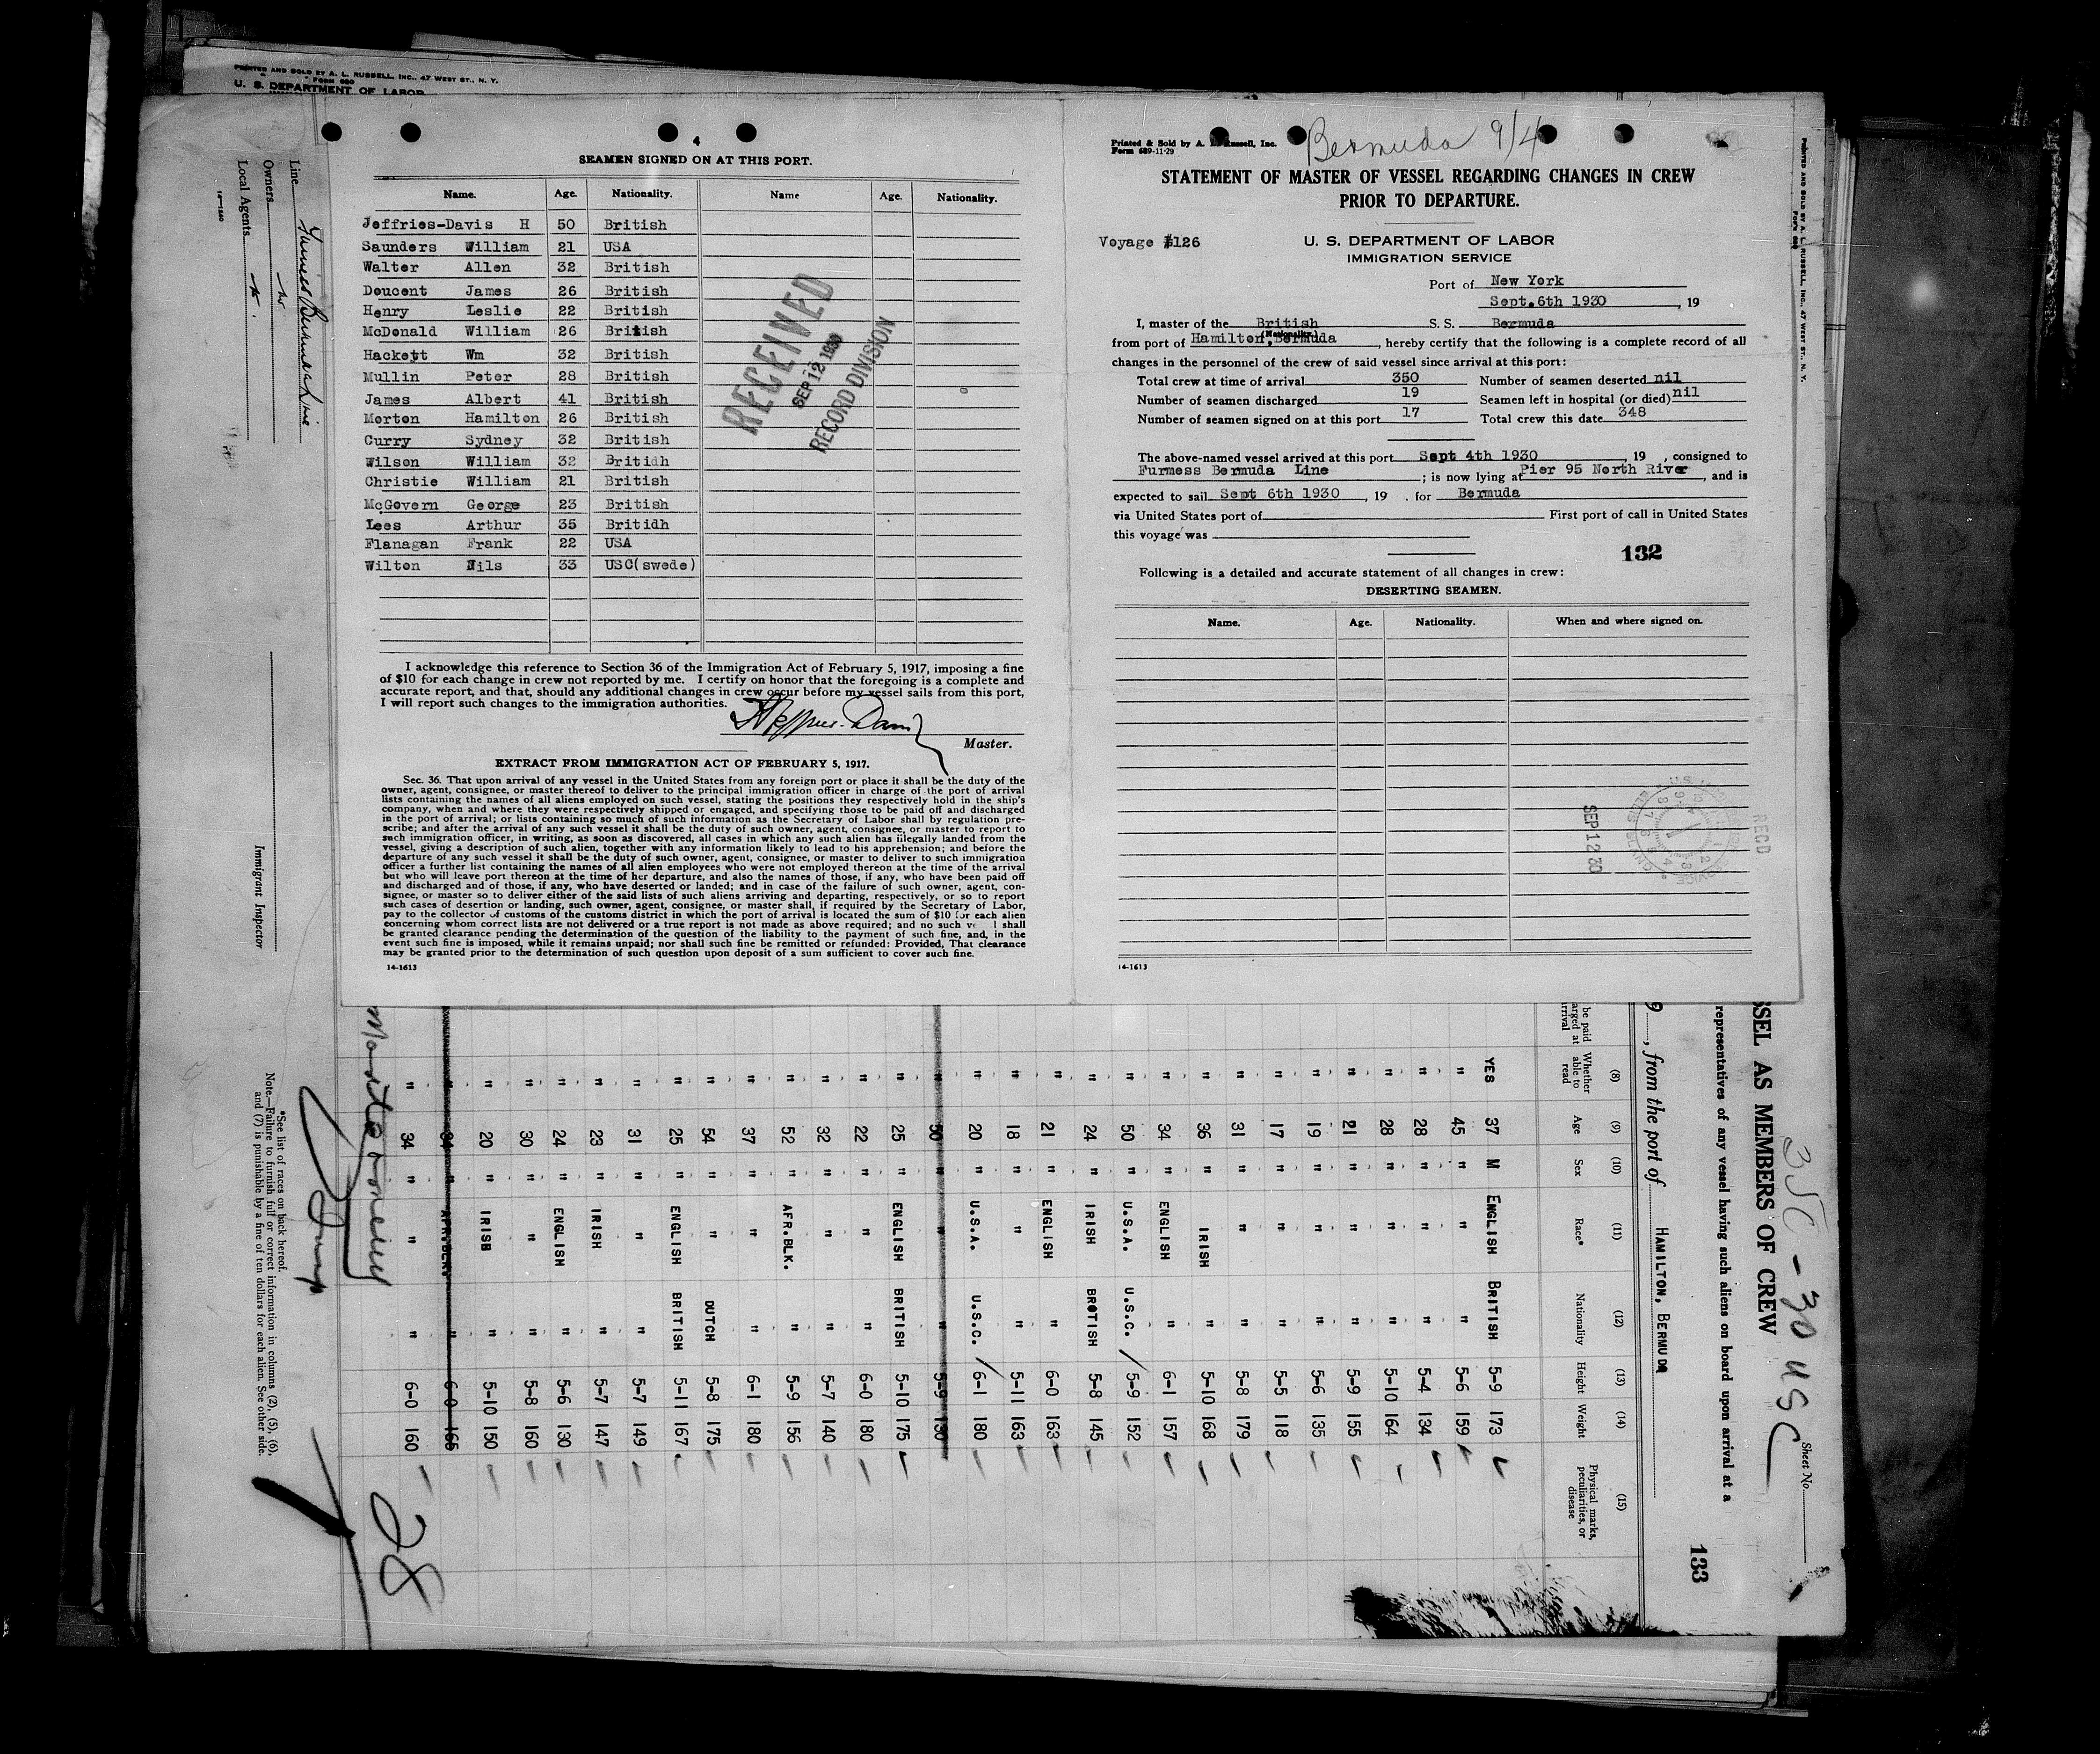 PRINTED AND SOLD BY A. L. RUSSELL, INC., 47 WEST ST., N. Y.
FORM 680
U. S. DEPARTMENT OF LABOR
4
SEAMEN SIGNED ON AT THIS PORT.
Name. Age. Nationality. Name Age. Nationality.
Jeffries-Davis H 50 British
Saunders William 21 USA
Walter Allen 32 British
Doucent James 26 British
Henry Leslie 22 British
McDonald William 26 British
Hackett Wm 32 British
Mullin Peter 28 British
James Albert 41 British
Morton Hamilton 26 British
Curry Sydney 32 British
Wilson William 32 Britidh
Christie William 21 British
McGovern George 23 British
Lees Arthur 35 Britidh
Flanagan Frank 22 USA
Wilton Nils 33 USC(swede)
RECEIVED
SEP 12 1930
RECORD DIVISION
I acknowledge this reference to Section 36 of the Immigration Act of February 5, 1917, imposing a fine
of $10 for each change in crew not reported by me. I certify on honor that the foregoing is a complete and
accurate report, and that, should any additional changes in crew occur before my vessel sails from this port,
I will report such changes to the immigration authorities.
Master.
EXTRACT FROM IMMIGRATION ACT OF FEBRUARY 5, 1917.
Sec. 36. That upon arrival of any vessel in the United States from any foreign port or place it shall be the duty of the
owner, agent, consignee, or master thereof to deliver to the principal immigration officer in charge of the port of arrival
lists containing the names of all aliens employed on such vessel, stating the positions they respectively hold in the ship's
company, when and where they were respectively shipped or engaged, and specifying those to be paid off and discharged
in the port of arrival; or lists containing so much of such information as the Secretary of Labor shall by regulation pre-
scribe; and after the arrival of any such vessel it shall be the duty of such owner, agent, consignee, or master to report to
such immigration officer, in writing, as soon as discovered, all cases in which any such alien has illegally landed from the
vessel, giving a description of such alien, together with any information likely to lead to his apprehension; and before the
departure of any such vessel it shall be the duty of such owner, agent, consignee, or master to deliver to such immigration
officer a further list containing the names of all alien employees who were not employed thereon at the time of the arrival
but who will leave port thereon at the time of her departure, and also the names of those, if any, who have been paid off
and discharged and of those, if any, who have deserted or landed; and in case of the failure of such owner, agent, con-
signee, or master so to deliver either of the said lists of such aliens arriving and departing, respectively, or so to report
such cases of desertion or landing, such owner, agent, consignee, or master shall, if required by the Secretary of Labor,
pay to the collector of customs of the customs district in which the port of arrival is located the sum of $10 for each alien
concerning whom correct lists are not delivered or a true report is not made as above required; and no such ve l shall
be granted clearance pending the determination of the question of the liability to the payment of such fine, and, in the
event such fine is imposed, while it remains unpaid; nor shall such fine be remitted or refunded: Provided, That clearance
may be granted prior to the determination of such question upon deposit of a sum sufficient to cover such fine.
14-1613
Printed & Sold by A. L. Russell, Inc.
Form 689-11-29
Bermuda 9/4
STATEMENT OF MASTER OF VESSEL REGARDING CHANGES IN CREW
PRIOR TO DEPARTURE.
Voyage #126
U. S. DEPARTMENT OF LABOR
IMMIGRATION SERVICE
Port of New York
Sept.6th 1930, 19
I, master of the British S. S. Bermuda
(Nationality)
from port of Hamilton, Bermuda, hereby certify that the following is a complete record of all
changes in the personnel of the crew of said vessel since arrival at this port:
Total crew at time of arrival 350 Number of seamen deserted nil
Number of seamen discharged 19 Seamen left in hospital (or died) nil
Number of seamen signed on at this port 17 Total crew this date 348
The above-named vessel arrived at this port Sept 4th 1930, 19 , consigned to
Furmess Bermuda Line; is now lying at Pier 95 North River, and is
expected to sail Sept 6th 1930, 19 . for Bermuda
via United States port of First port of call in United States
this voyage was
132
Following is a detailed and accurate statement of all changes in crew:
DESERTING SEAMEN.
Name. Age. Nationality. When and where signed on.
SEP 12 30
RECD
14-1613
PRINTED AND SOLD BY A. L. RUSSELL, INC., 47 WEST ST., N. Y.
Line Furness Bermuda Line
Owners do
Local Agents do.
14-1240
Immigrant Inspector
*See list of races on back hereof.
Note.—Failure to furnish full or correct information in columns (2), (5), (6),
and (7) is punishable by a fine of ten dollars for each alien. See other side.
350 - 30 USC
Sheet No.
SSEL AS MEMBERS OF CREW
representatives of any vessel having such aliens on board upon arrival at a
133
9, from the port of HAMILTON, BERMUDA
(8) (9) (10) (11) (12) (13) (14) (15)
be paid
arged at
rrival
Whether able to read Age Sex Race* Nationality Height Weight Physical marks, peculiarities, or disease
YES 37 M ENGLISH BRITISH 5-9 173
" 45 " " " 5-6 159
" 28 " " " 5-4 134
" 28 " " " 5-10 164
" 21 " " " 5-9 155
" 19 " " " 5-6 135
" 17 " " " 5-5 118
" 31 " " " 5-8 179
" 36 " IRISH " 5-10 168
" 34 " ENGLISH " 6-1 157
" 50 " U.S.A. U.S.C. 5-9 152
" 24 " IRISH BROTISH 5-8 145
" 21 " ENGLISH " 6-0 163
" 18 " " " 5-11 163
" 20 " U.S.A. U.S.C. 6-1 180
" 50 " " " 5-9 130
" 25 " ENGLISH BRITISH 5-10 175
" 22 " " " 6-0 180
" 32 " " " 5-7 140
" 52 " AFR.BLK. " 5-9 156
" 37 " " " 6-1 180
" 54 " " DUTCH 5-8 175
" 25 " ENGLISH BRITISH 5-11 167
" 31 " " " 5-7 149
" 23 " IRISH " 5-7 147
" 24 " ENGLISH " 5-6 130
" 30 " " " 5-8 160
" 20 " IRISH " 5-10 150
" 34 " AFR.BLK. " 6-0 165
" 34 " " " 6-0 160
28